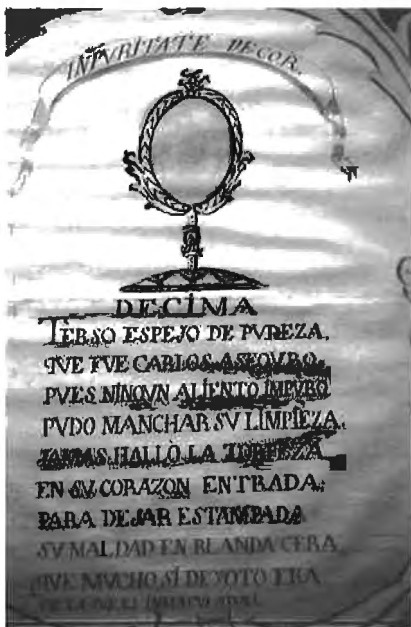 IN PVRITATE DECOR.
DECIMA
TERSO ESPEJO DE PVREZA,
QVE FVE CARLOS ASEGVRO,
PVES NINGVN ALIENTO IMPVRO
PVDO MANCHAR SV LIMPIEZA.
JAMAS HALLÒ LA TORPEZA
EN SV CORAZON ENTRADA;
PARA DEJAR ESTAMPADA
SV MALDAD EN BLANDA CERA
QVE MVCHO SÍ DEVOTO ERA
DE LA